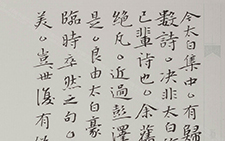 今太白集中。有歸
數詩。決非太白
已輩詩也。余舊
絕凡。近過彭澤
是。良由太白豪
臨時卒然之句。
美。豈世復有